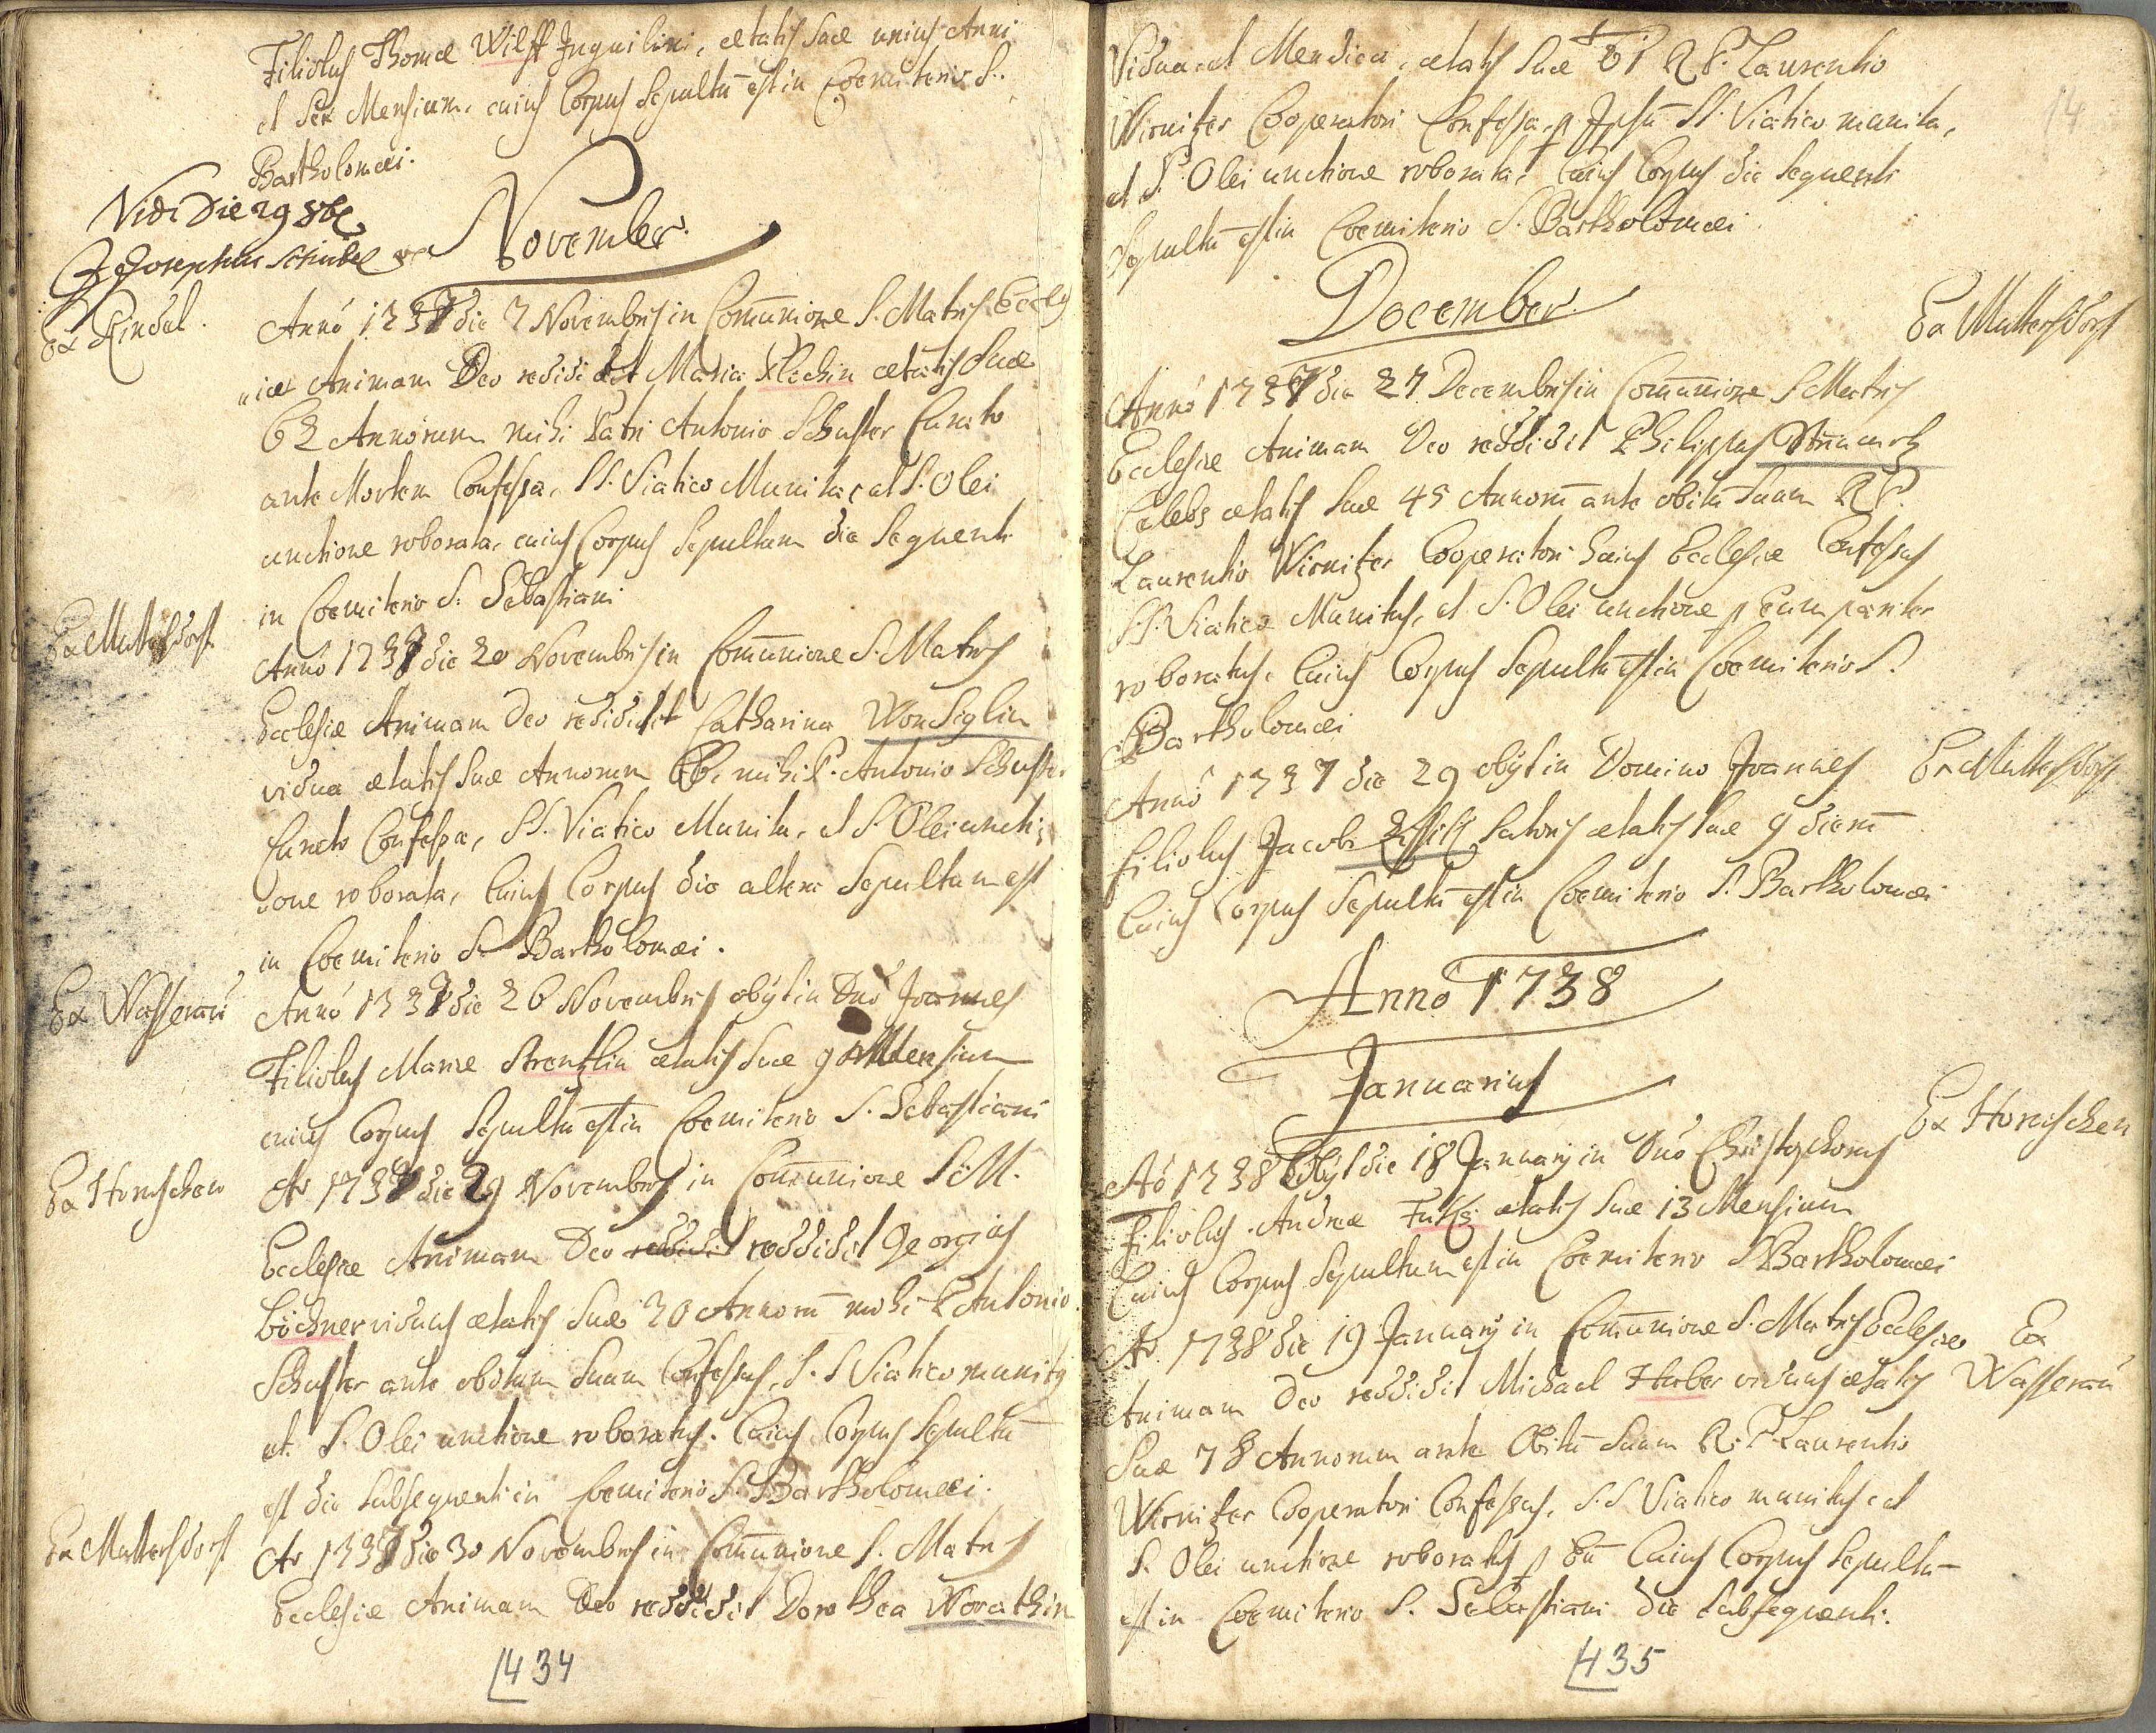 Filiolus Thomæ Wilfst Inquilini, ætatis suæ unius Anni
et Sex Mensium, cuius Corpus Sepultū est in Coemiterio S.
Bartholomæi.
Vidi Die 29 8be
Josephus Schubel
November
Ex Lindal.
Anno 1737 die 7 Novembris in Com̄unione S. Matris Eccles
iæ Animam Deo redidit Maria Plechin ætatis Suæ
62 Annorum mihi Patri Antonio Schuster Curato
ante Mortem Confessa, SS. Viatico Munita, et S. Olei
unctione roborata, cuius Corpus Sepultum die Sequenti
in Coemiterio S. Sebastiani
Ex Muttersdorf
Anno 1737 die 20 Novembris in Com̄unione S. Matris
Ecclesiæ Animam Deo redidit Catharina WonSiglin
vidua ætatis suæ Annorum 66, mihi P. Antonio Schuster
Curato Confessa, SS. Viatico Munita, et S. Olei uncti
one roborata, Cuius Corpus die altera Sepultum est
in Coemiterio S. Bartholomæi.
Ex Wasserau
Anno 1737 die 26 Novembris obijt in Dn̄o Joannes
Filiolus Mariæ Strentzlin ætatis Suæ 9 Mensium
cuius Corpus Sepultū est in Coemiterio S. Sebastiani
Ex Horuschen
Ao 1737 die 29 Novembris in Com̄unione S. M.
Ecclesiæ Animam Deo redidit reddidit Georgius
Böchner viduus ætatis Suæ 70 Annorū mihi P Antonio
Schuster ante obitum Suum Confessus, S. S Viatico munitus
et S. Olei unctione roboratus. Cuius Corpus Sepultū
est die Subsequenti in Coemiterio S. Bartholomæi.
Ex Muttersdorf
Ao 1737 die 30 Novembris in Com̄unione S. Matris
Ecclesiæ Animam Deo reddidit Dorothea Worathin
434
14
Vidua et Mendica, ætatis suæ 61 R P. Laurentio
Wirnitzer Cooperatori Confessa, p Ipsū SS. Viatico munita,
et S. Olei unctione roborata, Cuius Corpus die Sequenti
Sepultū est in Coemiterio S. Bartholomæi
December
Ex Muttersdorf
Anno 1737 die 27 Decembris in Com̄unione S Matris
Ecclesiæ Animam Deo reddidit Philippus
Celebs ætatis suæ 45 Annorū ante obitū Suum R P.
Laurentio Wirnitzer Cooperatori huius Ecclesiæ Confessus
SS. Viatico Munitus, et S. Olei unctione p Eum pariter
roboratus, Cuius Corpus Sepultū est in Coemiterio S.
Bartholomæi
Ex Muttersdorf
Anno 1737 die 29 obijt in Domino Joannes
filiolus Jacobi Sutoris ætatis suæ 9 dierū
Cuius Corpus Sepultū est in Coemiterio S. Bartholomæi
Anno 1738
Januarius
Ex Horuschen
Ao 1738 Obijt die 18 Januarij in Dn̄o Christophorus
filiolus Andreæ ætatis suæ 13 Mensium
Cuius Corpus Sepultum est in Coemiterio S Bartholomæi
Ex
Wasserau
Ao 1738 die 19 Januarij in Com̄unione S. Matris Ecclesiæ
Animam Deo reddidit Michael Huber viduus ætatis
Suæ 78 Annorum ante Obitū Suum R. P. Laurentio
Wirnitzer Cooperatori Confessus, S. S Viatico munitus et
S. Olei unctione roboratus p Eū Cuius Corpus Sepultū
est in Coemiterio S. Sebastiani die Subsequenti.
435